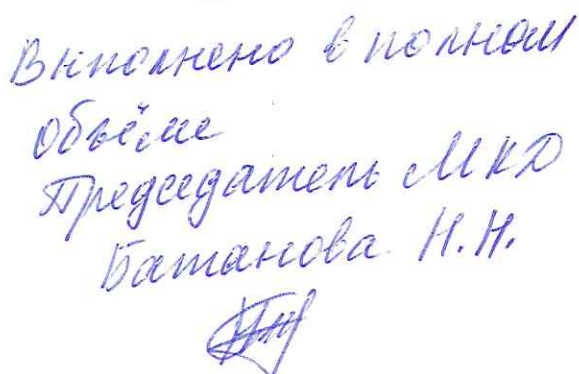 Выполнено в полном
объёме
Председатель МКД
Батанова Н.Н.